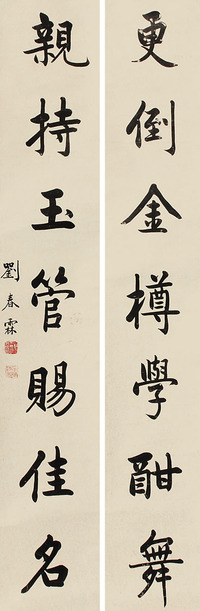 更倒金樽學酣舞
親持玉管賜佳名
劉春霖